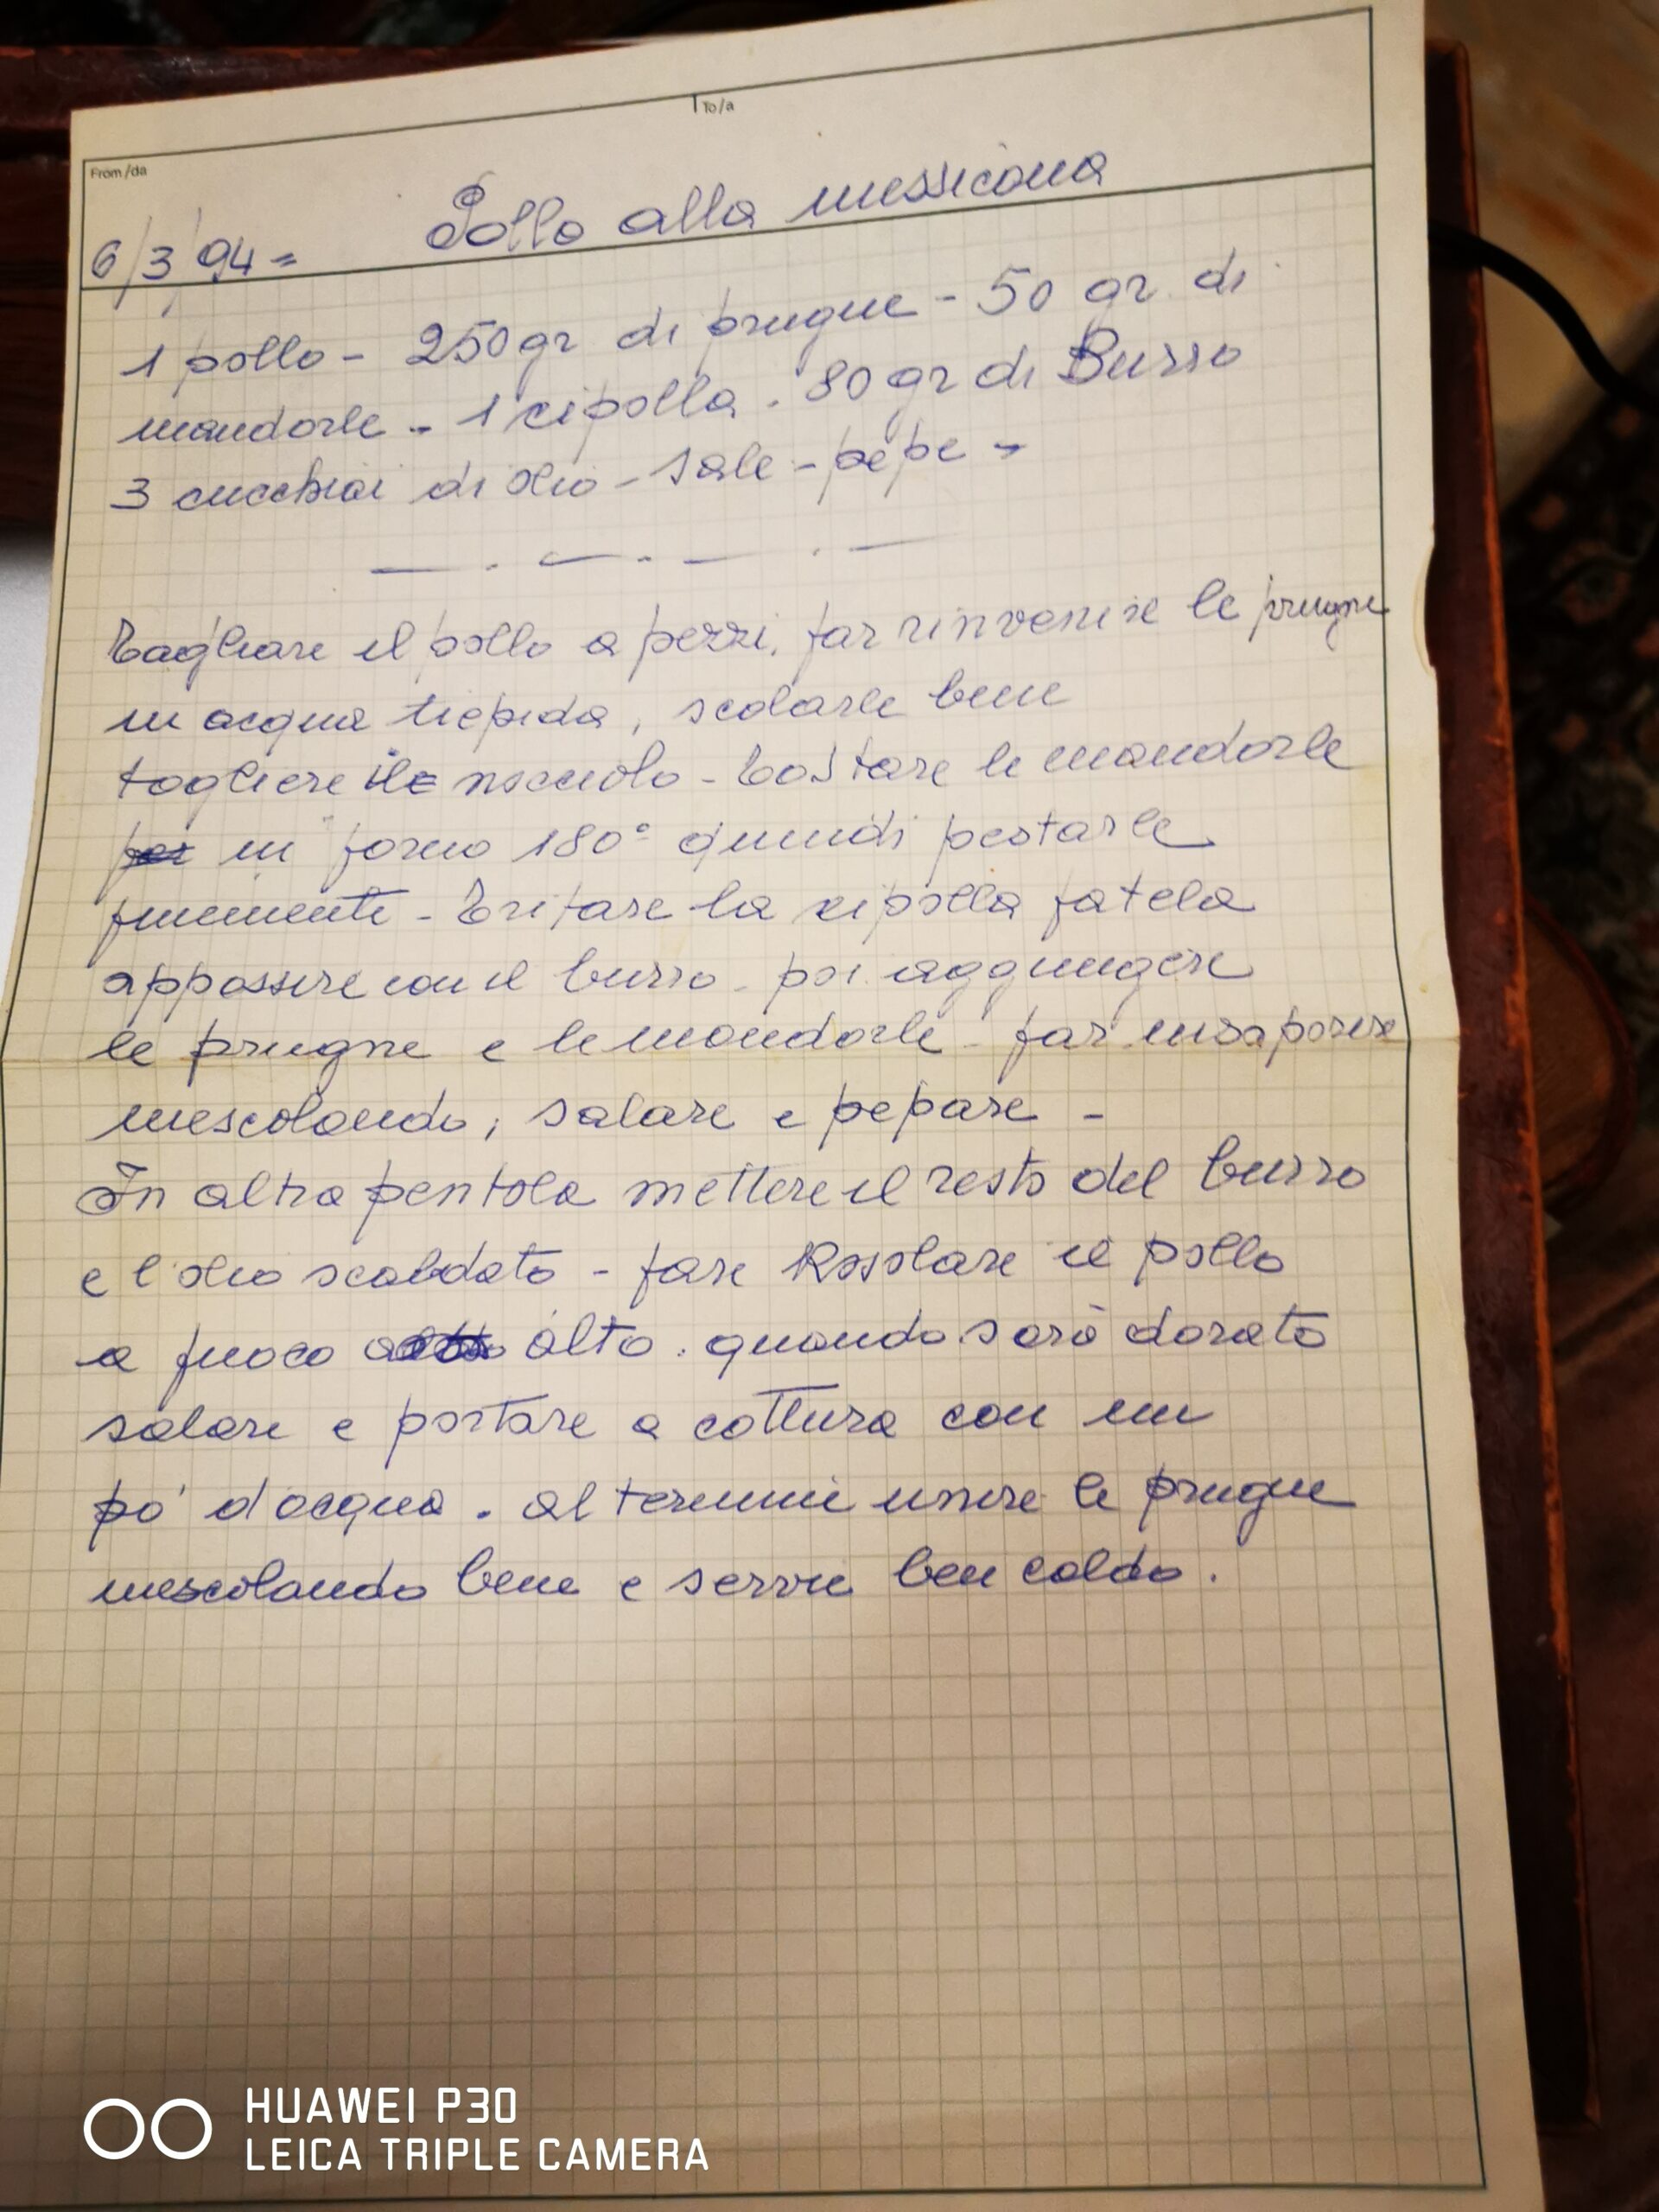 To/a
From/da
6/3/94= Pollo alla messicana
1 pollo - 250 gr di prugne - 50 gr di
mandorle - 1 cipolla - 80 gr di Burro
3 cucchiai di olio - sale - pepe -
Tagliare il pollo a pezzi, far rinvenire le prugne
in acqua tiepida, scolarle bene
togliere il nocciolo - tostare le mandorle
in forno 180° quindi pestarle
finemente - Tritare la cipolla fatela
appassire con il burro - poi aggiungere
le prugne e le mandorle - far insaporire
mescolando, salare e pepare -
In altra pentola mettere il resto del burro
e l'olio scaldato - fare Rosolare il pollo
a fuoco alto. quando sarà dorato
salare e portare a cottura con un
po' d'acqua. al termine unire le prugne
mescolando bene e servire ben caldo.
HUAWEI P30
LEICA TRIPLE CAMERA